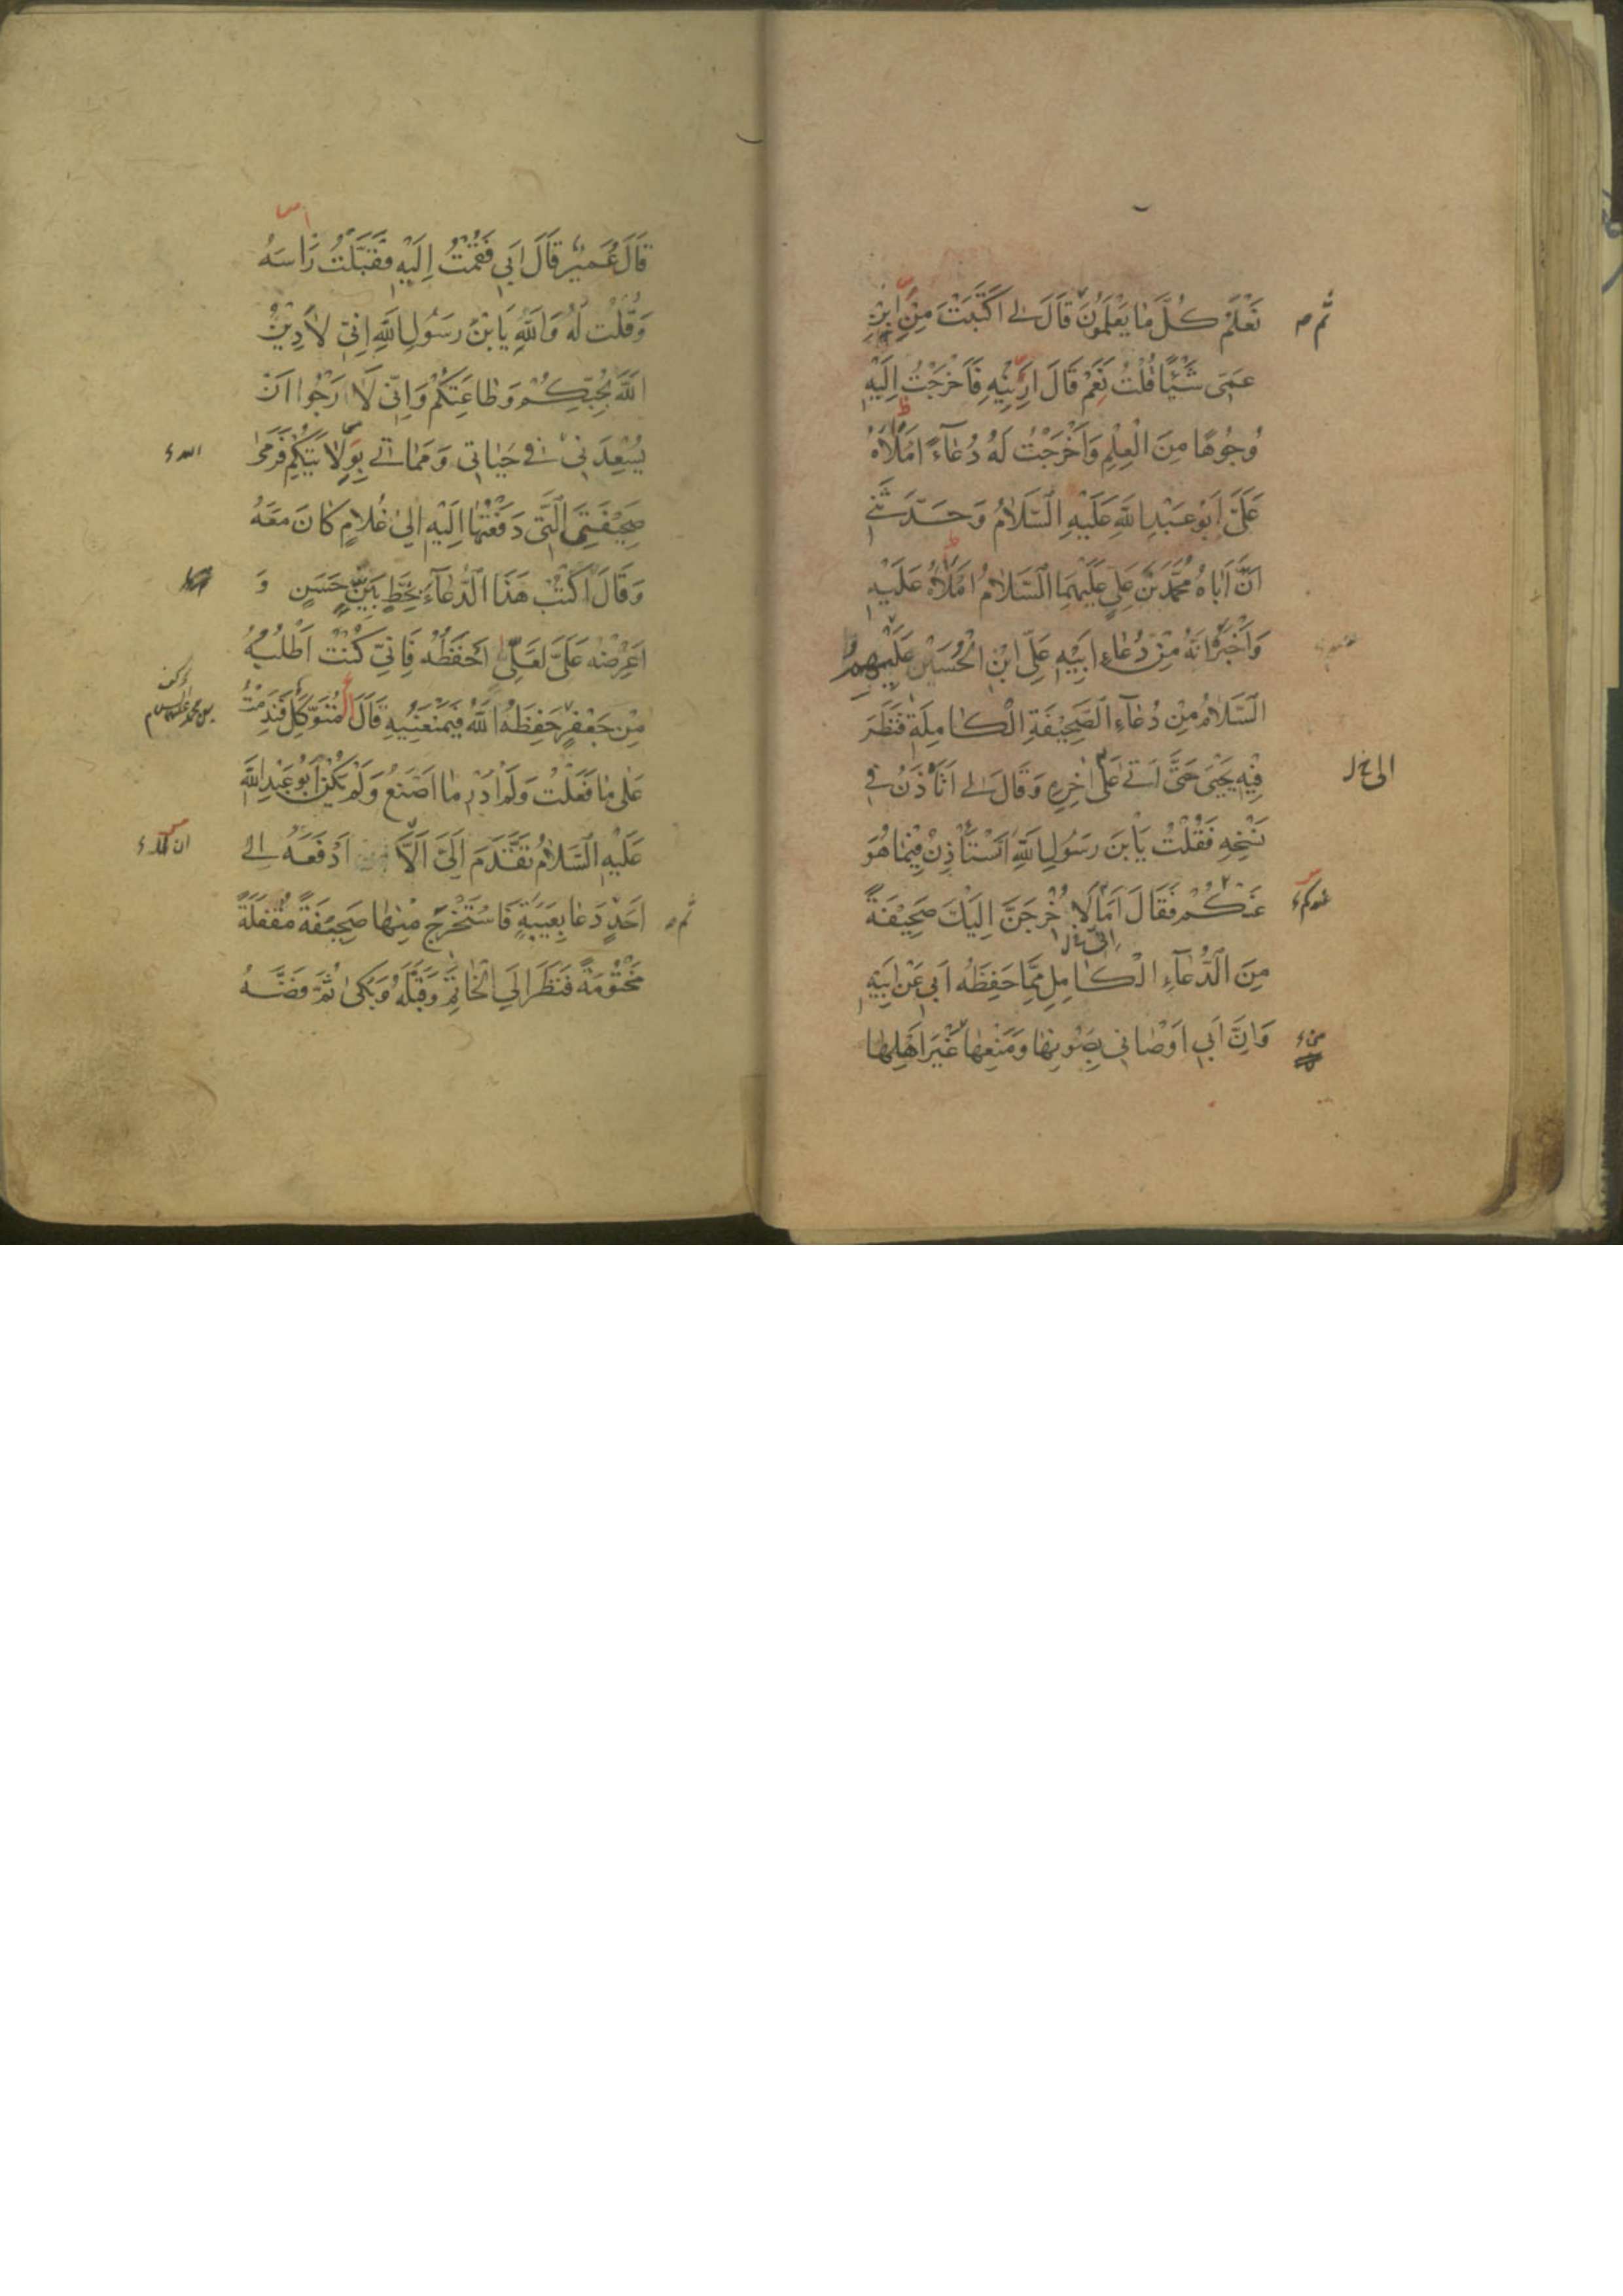 نَعْلَمُ كُلَّ مٰا يَعْلَمُونَ قَالَ لِي اَكَتَبْتَ مِنْ ابْنِ
ثم
عَمّي شَيْئًا قُلْتُ نَعَمْ قَالَ اَرِنِيْهِ فَاَخْرَجْتُ اِلَيْهِ
وُجُوهًا مِنَ الْعِلْمِ وَاَخْرَجْتُ لَهُ دُعٰاءً اَمْلَاهُ
عَلَيَّ اَبُو عَبْدِ اللّٰهِ عَلَيْهِ السَّلٰامُ وَحَدَّثَني
اَنَّ اَبٰاهُ مُحَمَّدَ بْنَ عَلِيٍّ عَلَيْهِمَا السَّلٰامُ اَمْلَاهُ عَلَيْهِ
وَاَخْبَرَهُ اَنَّهُ مِنْ دُعٰاءِ اَبِيْهِ عَلِيِّ ابْنِ الْحُسَيْنِ عَلَيْهِمُ
السَّلٰامُ مِنْ دُعٰاءِ الصَّحِيْفَةِ الْكٰامِلَةِ فَنَظَرَ
فِيْهِ يَحْيىٰ حَتّىٰ اَتىٰ عَلىٰ اٰخِرِهِ وَقَالَ لِي اَتَأْذَنُ في
نَسْخِهِ فَقُلْتُ يَابْنَ رَسُولِ اللّٰهِ اَتَسْتَأْذِنُ فِيْمٰا هُوَ
عَنْكُمْ فَقَالَ اَمٰا لَاُخْرِجَنَّ اِلَيْكَ صَحِيْفَةً
مِنَ الدُّعٰاءِ الْكٰامِلِ مِمّٰا حَفِظَهُ اَبي عَنْ اَبِيْهِ
وَاِنَّ اَبي اَوْصٰاني بِصَوْنِهٰا وَمَنْعِهٰا غَيْرَ اَهْلِهٰا
قَالَ عُمَيْرٌ قَالَ اَبي فَقُمْتُ اِلَيْهِ فَقَبَّلْتُ رَأسَهُ
وَقُلْتُ لَهُ وَاللّٰهِ يَابْنَ رَسُولِ اللّٰهِ اِنّي لَاَدِيْنُ
اللّٰهَ بِحُبِّكُمْ وَطٰاعَتِكُمْ وَاِنّي لَاَرْجُوا اَنْ
يُسْعِدَني في حَيٰاتي وَمَمٰاتي بِوِلٰايَتِكُمْ فَرَمىٰ
صَحِيْفَتِيَ الَّتي دَفَعْتُهٰا اِلَيْهِ اِلىٰ غُلٰامٍ كٰانَ مَعَهُ
وَقَالَ اكْتُبْ هَذَا الدُّعٰاءَ بِخَطٍّ بَيِّنٍ حَسَنٍ وَ
اعْرِضْهُ عَلَيَّ لَعَلّي اَحْفَظُهُ فَاِنّي كُنْتُ اَطْلُبُهُ
مِنْ جَعْفَرٍ حَفِظَهُ اللّٰهُ فَيَمْنَعَنِيْهِ قَالَ الْمُتَوَكِّلُ فَنَدِمْتُ
عَلىٰ مٰا فَعَلْتُ وَلَمْ اَدْرِ مٰا اَصْنَعُ وَلَمْ يَكُنْ اَبُو عَبْدِ اللّٰهِ
عَلَيْهِ السَّلٰامُ تَقَدَّمَ اِلَيَّ اَلَّا اَدْفَعَهُ اِلىٰ
اَحَدٍ دَعٰا بِعَيْبَةٍ فَاسْتَخْرَجَ مِنْهٰا صَحِيْفَةً مُقْفَلَةً
ثم
مَخْتُوْمَةً فَنَظَرَ اِلَى الْخٰاتَمِ وَقَبَّلَهُ وَبَكىٰ ثُمَّ فَضَّهُ